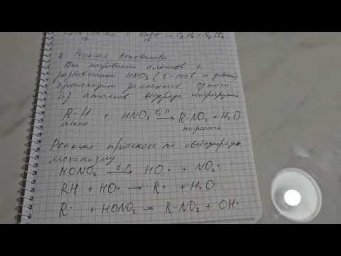 Реакция Коновалова
При нагревании алканов с
разбавленной HNO₃ (t ~ 140°C и давл)
происходит замещение одного
из атомов водорода нитрогр
R-H + HNO₃ t,p→ R-NO₂ + H₂O
алкан
Реакция протекает по свободнорад
механизму
HONO₂ → HO· + NO₂·
RH + HO· → R· + H₂O
R· + HONO₂ → R-NO₂ + OH·